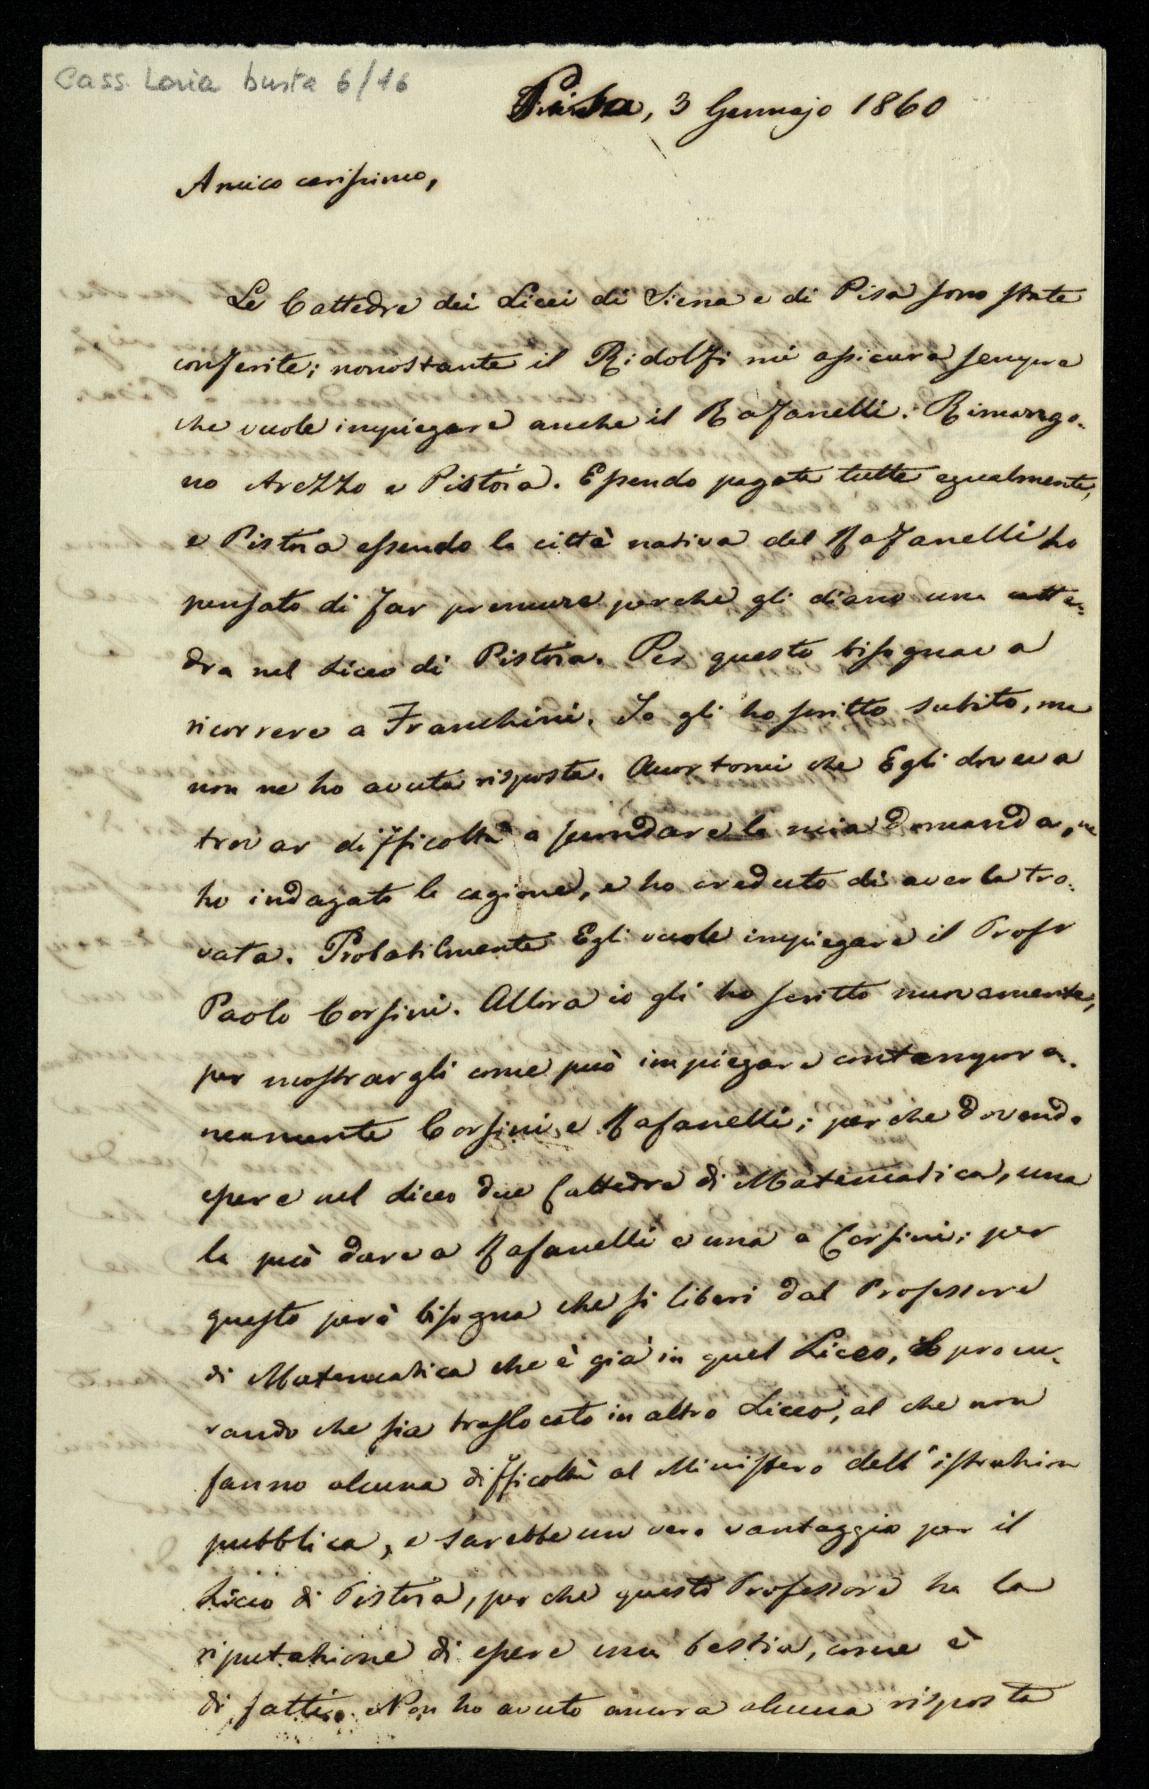 Cass. Loria busta 6/16
Pisa, 3 Gennajo 1860
Amico carissimo,
Le Cattedre dei Licei di Siena e di Pisa sono state
conferite; nonostante il Ridolfi mi assicura sempre
che vuole impiegare anche il Rafanelli. Rimango-
no Arezzo e Pistoia. Essendo pagate tutte egualmente,
e Pistoia essendo la città nativa del Rafanelli ho
pensato di far premure perché gli diano una catte-
dra nel Liceo di Pistoia. Per questo bisognava
ricorrere a Franchini. Io gli ho scritto subito, ma
non ne ho avuta risposta. Accortomi che Egli doveva
trovar difficoltà a secondare la mia domanda, ne
ho indagato la cagione, e ho creduto di averla tro-
vata. Probabilmente Egli vuole impiegare il Profr
Paolo Corsini. Allora io gli ho scritto nuovamente,
per mostrargli come può impiegare contempora-
neamente Corsini e Rafanelli; perche dovendo
essere nel Liceo due Cattedre di Matematica, una
la può dare a Rafanelli e una a Corsini; per
questo però bisogna che si liberi dal Professore
di Matematica che è già in quel Liceo, procu-
rando che sia traslocato in altro Liceo, al che non
fanno alcuna difficoltà al Ministero dell'istruzion
pubblica, e sarebbe un vero vantaggio per il
Liceo di Pistoia, perche questo Professore ha la
riputazione di essere una bestia, come è
di fatti. Non ho avuto ancora alcuna risposta